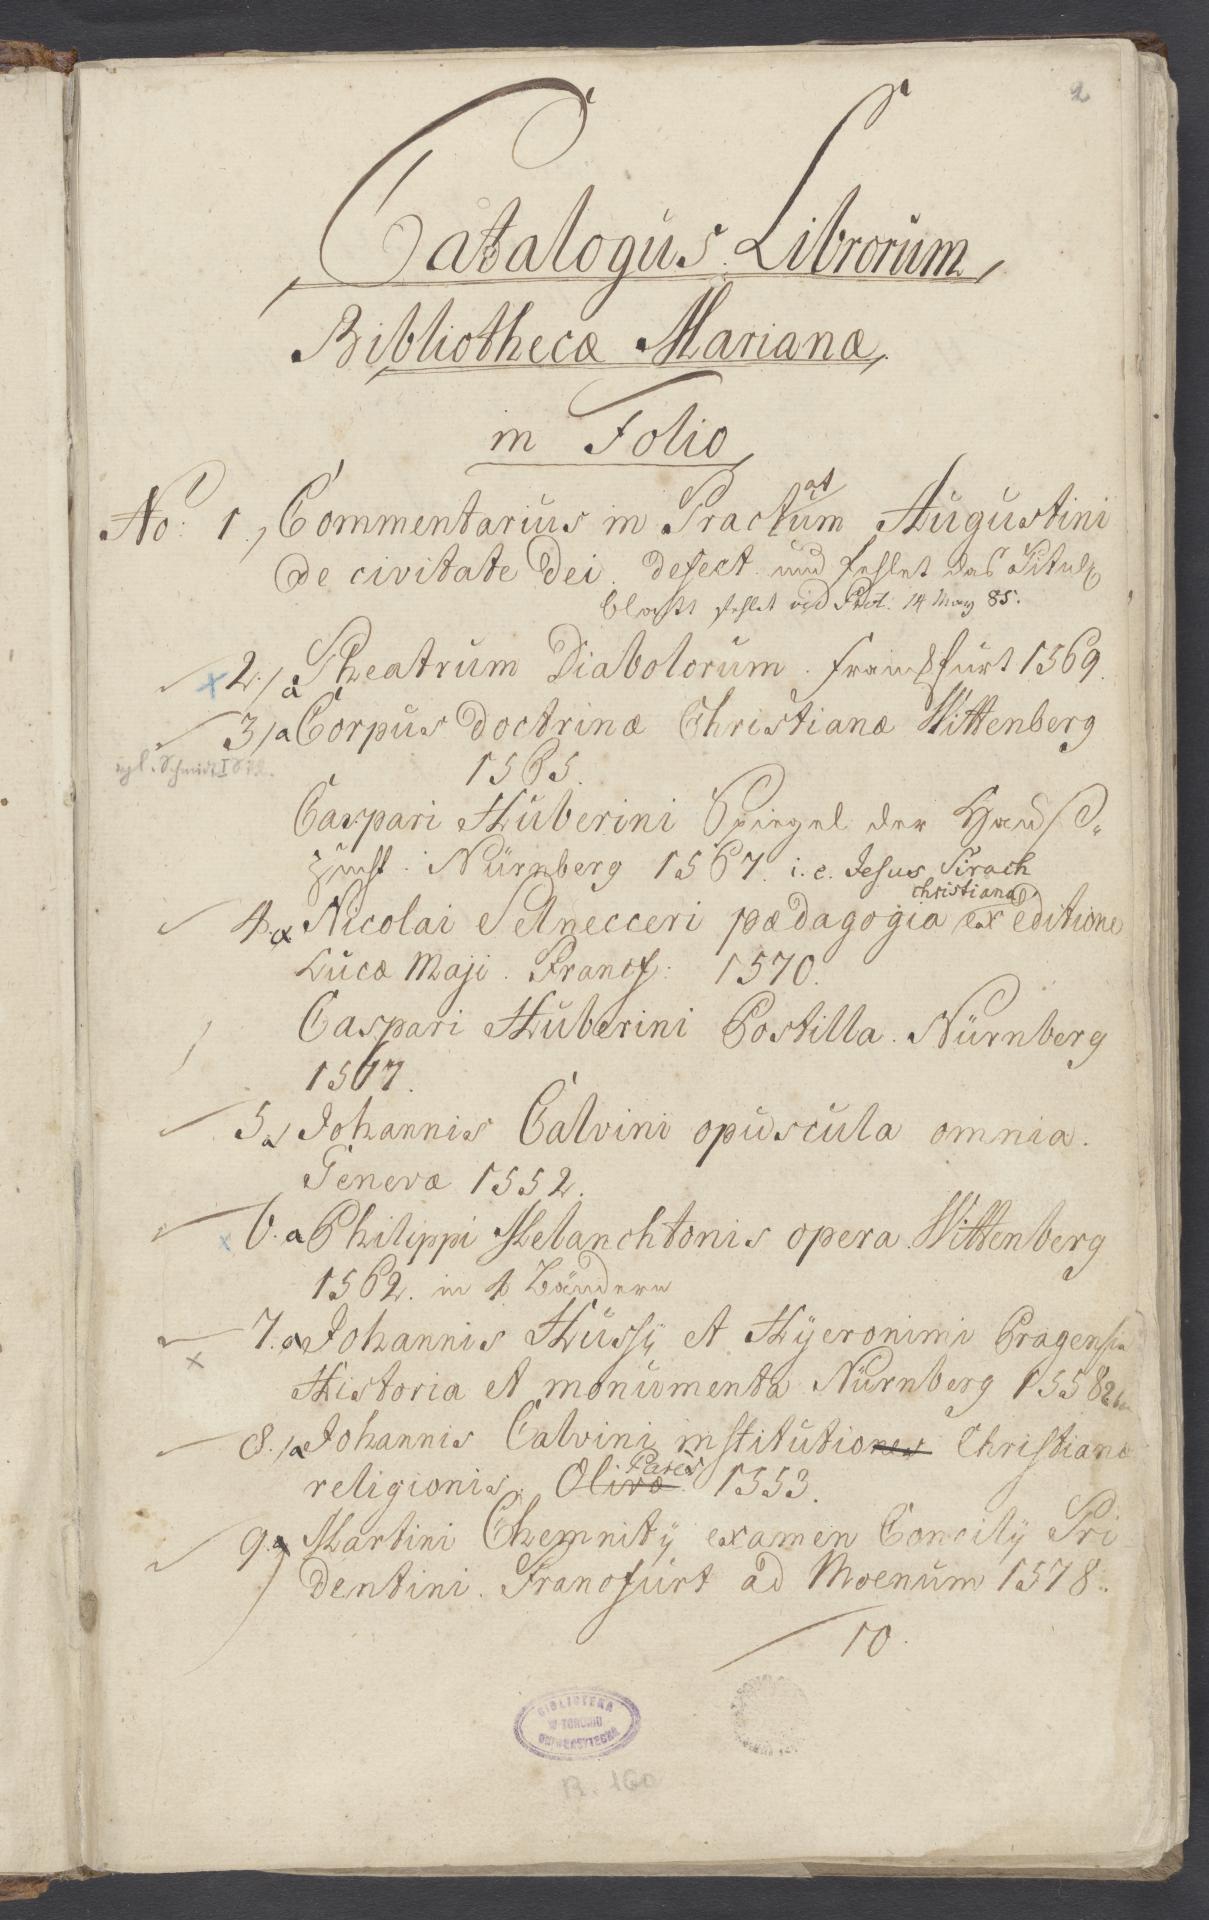 2
Catalogus Librorum
Bibliothecæ Marianæ
in Folio
No: 1., Commentarius in Tractatum Augustini
de civitate Dei. defect. und fehlet das Titul
blatt fehlet vid Prot: 14 May 85.
2./a Theatrum Diabolorum. Frankfurt 1569.
3/a Corpus doctrinæ Christianæ Wittenberg
vgl. Schmidt I
1565.
Caspari Huberini Spiegel der Hauß
zucht. Nürnberg 1567. i. e. Jesus Sirach
christiana
4.a Nicolai Selnecceri pædagogia ex editione
Lucæ Maji. Francf: 1570.
Caspari Huberini Postilla. Nürnberg
1567.
5.a Johannis Calvini opuscula omnia.
Genevæ 1552.
6.a Philippi Melanchtonis opera. Wittenberg
1562. in 4 Bändern
7.a Johannis Hussij et Hyeronimi Pragensis
Historia et monumenta Nürnberg 1558
8./a Johannis Calvini institutiones Christianæ
religionis. Olivæ 1553.
9.a Martini Chemnitij examen Concilij Tri
dentini. Francfurt ad Moenum 1578.
10.
BIBLIOTEKA
W TORUNIU
UNIWERSYTECKA
R. 160